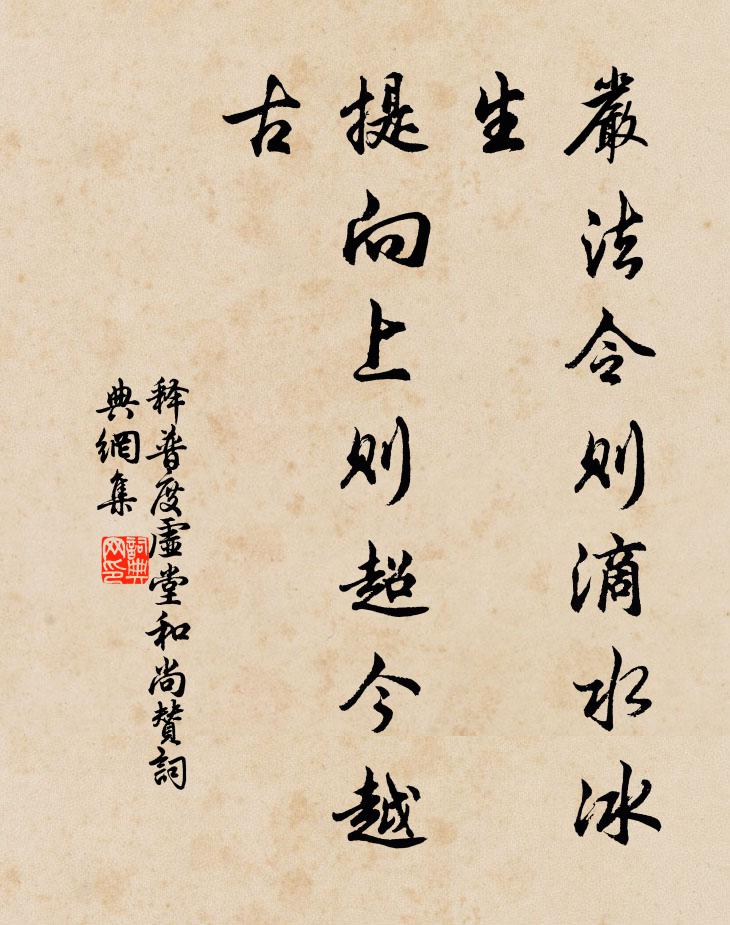 嚴法令則滴水冰
生
提向上則超今越
古
释普度虛堂和尚贊詞
典網集
詞典
网印